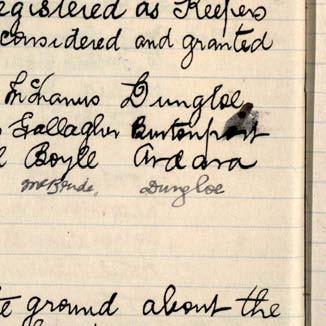 egistered as Keepers
considered and granted
McManus Dungloe
Gallagher Burtonport
Boyle Ardara
McBride, Dungloe
ground about the